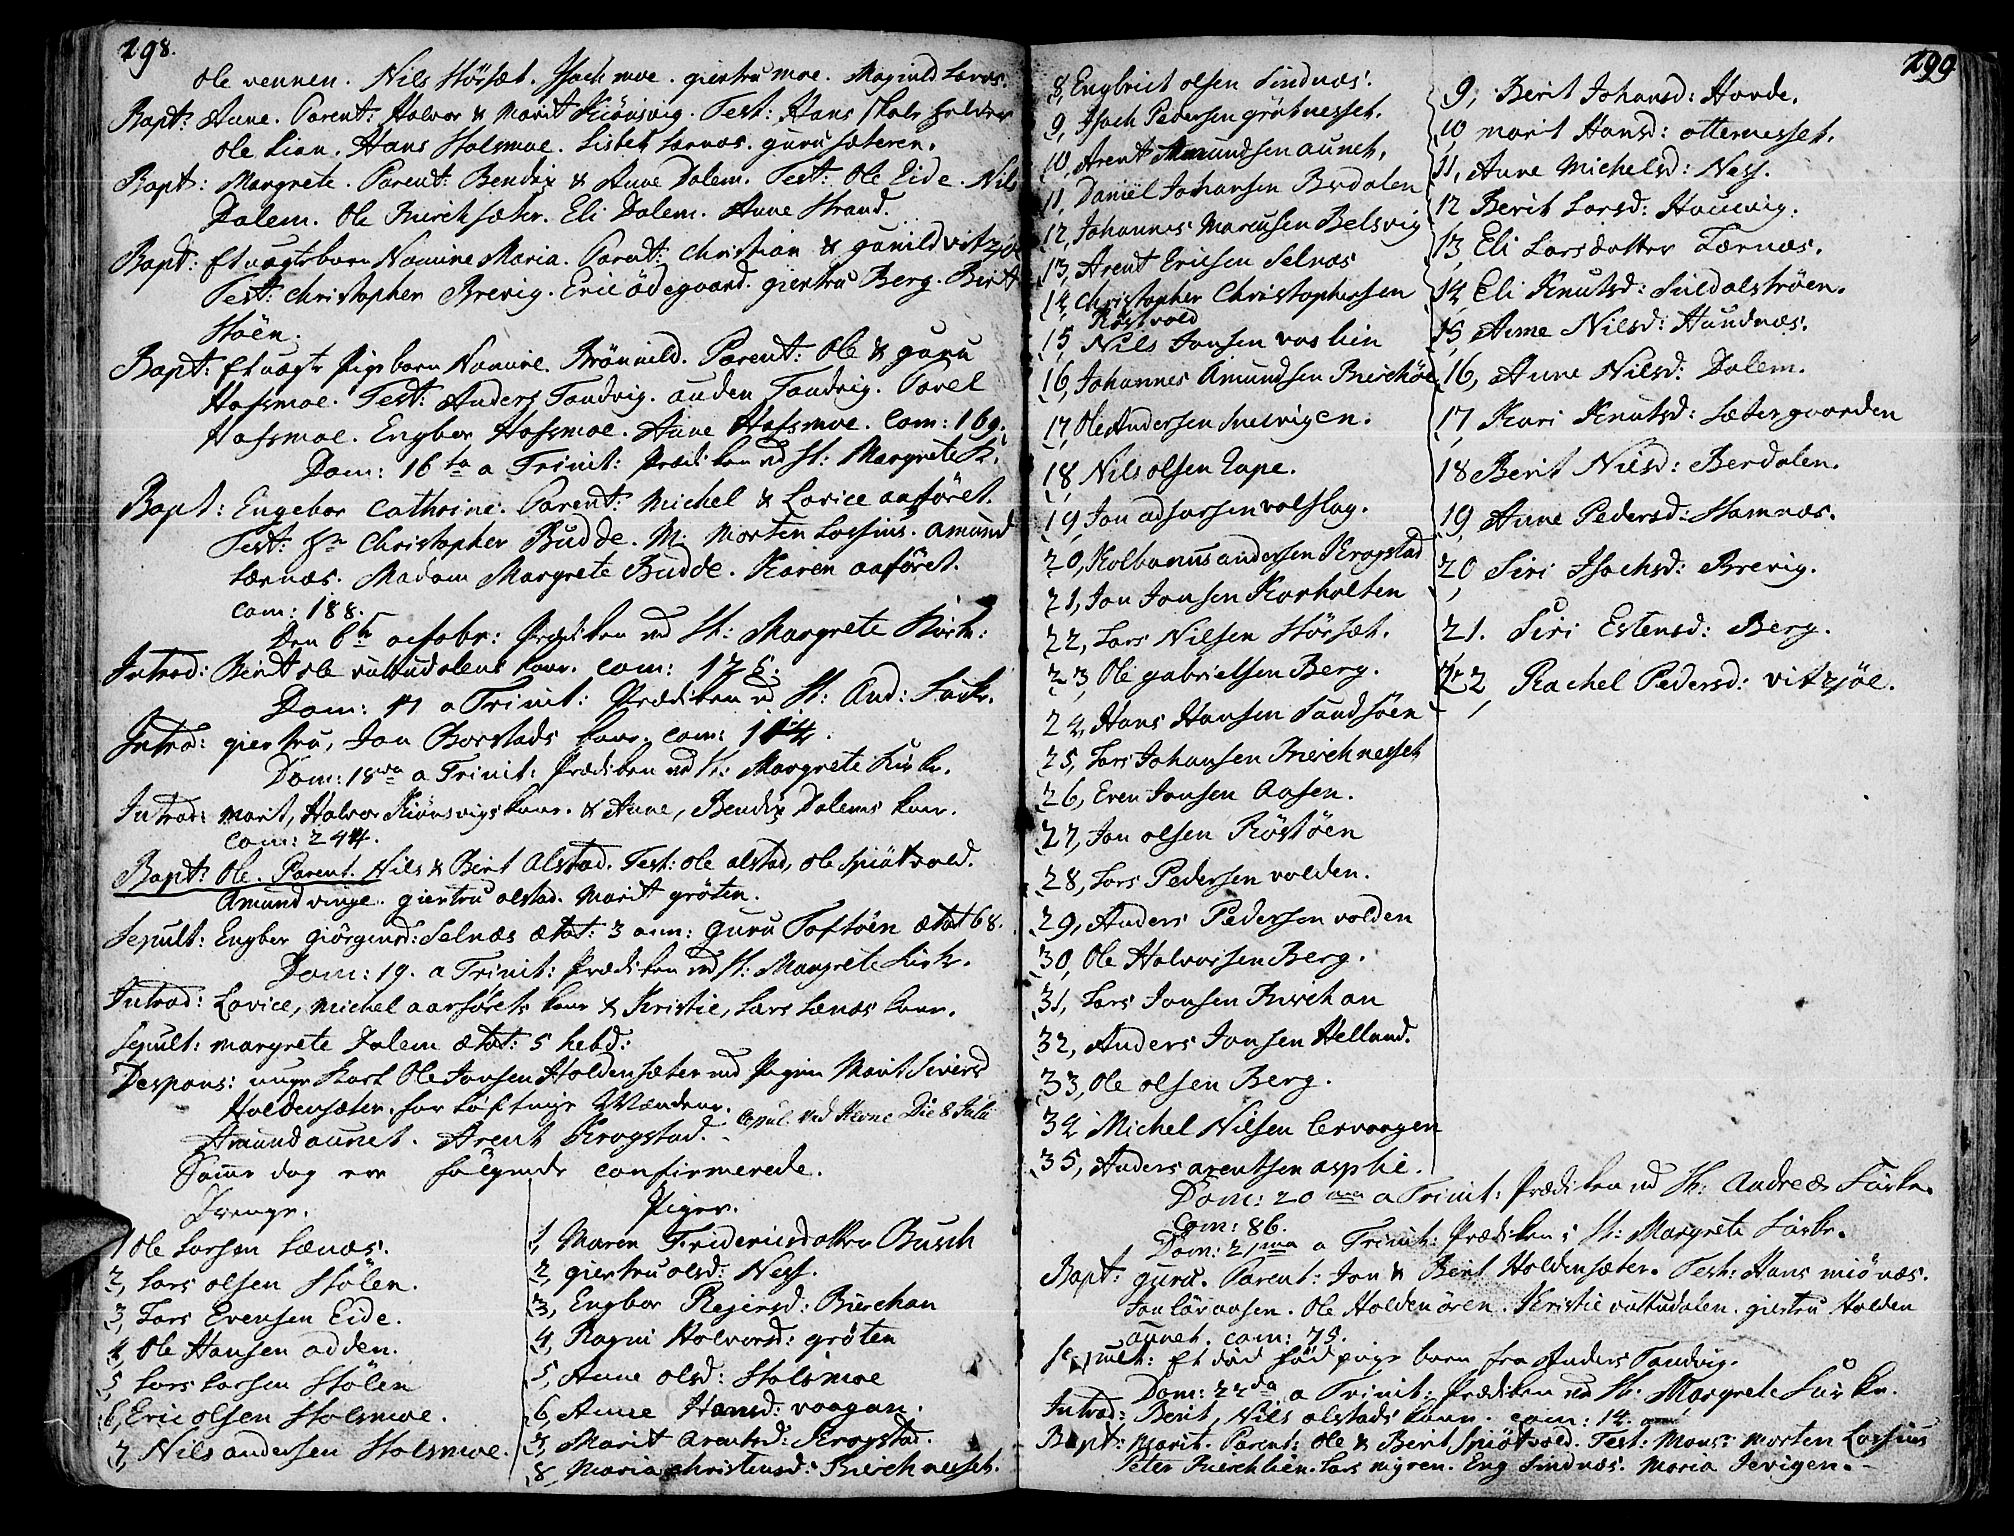 298.
Ole vennen. Nils Störset. Isach moe. giertru moe. Magnild Lærnæs.
Bapt: Anne. Parent: Halvor & Marit Kiönsvig. Test: Hans
Ole Lian. Hans Stolsmoe. Lisbet Lærnæs. guru sæteren.
Bapt: Margrete. Parent: Bendix & Anne Dalem. Test: Ole Eide. Nils
Dalem. Ole Bierchsæter. Eli Dalem. Anne Strand.
Bapt: Et uægte barn Nomine Maria. Parent: Christian & gunild vitzjöe
Test: Christopher Brevig. Eric ödegaard. giertru Berg. Berit
Stöen.
Bapt: Et uægte Pige barn Nomine Brönnild. Parent: Ole & guru
Hafsmoe. Test: Anders Tandvig. auden Tandvig. Pavel
Hafsmoe. Engbor Hafsmoe. Anne Hafsmoe. Com: 169.
Dom: 16ta a Trinit: Prædiken ved St: Margrete K.
Bapt: Engebor Cathrine. Parent: Michel & Lovice aaföret.
Test: Hr Christopher Budde. M. Morten Lossius. Amund
Lærnæs. Madam Margrete Budde. Karen aaföret.
Com: 188.
Den 6te octobr: Prædiken ved St: Margrete Kirke:
Introd: Berit Ole vuttudalens kone. Com: 175.
Dom: 17 a Trinit: Prædiken v. St: And: Kirke.
Introd: giertru, Jon Borstads kone. Com: 114.
Dom: 18va a Trinit: Prædiken ved St: Margrete Kirke.
Introd: Marit, Halvor Kiönsvigs kone. & Anne, Bendix Dalems kone.
Com: 244.
Bapt: Ole. Parent. Nils & Berit Alstad. Test: Ole alstad, Ole Spiötvold.
Amund vinge. giertru alstad. Marit gröten.
Sepult: Engber Giörgensd: Selnæs ætat: 3 ann: Guru Toftöen ætat 68.
Dom: 19. a Trinit: Prædiken ved St: Margrete Kirke.
Introd: Lovice, Michel aarförets kone & Kristie, Lars Lænæs kone.
Sepult: margrete Dalem ætat: 5 hebd:
Despons: unge Karl Ole Jonsen Holdensæter med Pigen Marit Siversd
Holdensæter. for Löftnings Mændene.
Amund aunet. Arent Krogstad. Copul. ved Hevne Die 8 Julii
Samme dag ere følgende confirmerede.
Drenge.
1 Ole Larsen Lænæs.
2, Lars olsen Stölen.
3, Lars Evensen Eide.
4, Ole Hansen adden.
5 Lars Larsen Stölen
6, Eric olsen Stolsmoe.
7, Nils andersen Stolsmoe.
Piger.
1, Maren Fridericisdatter Busch
2, giertru olsd: Ness.
3, Engbor Rejersd: Bierchan
4, Ragni Halvorsd: gröten
5, Anne Olsd: Stolsmoe
6, Anne Hansd: vaagan.
7, Marit Arentsd: Krogstad.
8 Maria Christensd: Bierchnesset.
299
8, Engbrict olsen Sindnæs.
9, Isach Pedersen grötnesset.
10, Arent Amundsen aunet.
11, Daniel Johansen Berdalen
12, Johannes Marcusen Belsvig
13, Arent Ericsen Selnæs
14, Christopher Christophersen
Röstvold
15, Nils Jonsen vaslien
16, Johannes Amundsen Bierchöe
17, Ole Andersen Snevigen.
18 Nils olsen Eape.
19, Jon adsersen valslag.
20, Kolbanus andersen Krogstad
21, Jon Jonsen Karholten
22, Lars Nilsen Störset.
23, Ole gabrielsen Berg.
24, Hans Hansen Sandsöen
25, Lars Johansen Bierchnesset
26, Even Jonsen Aasen.
27, Jon olsen Röstöen
28, Lars Pedersen volden.
29, Anders Pedersen volden
30, Ole Halvorsen Berg.
31, Lars Jonsen Bierchan
32, Anders Jonsen Helland.
33, Ole olsen Berg.
34 Michel Nilsen Ervaagen
35, Anders arentsen asplie.
9, Berit Johansd: Havde.
10 marit Hansd: otternesset.
11, Anne Michelsd: Ness.
12 Berit Larsd: Hamvig.
13, Eli Larsdatter Lærnæs.
14, Eli Knutsd: Suldalströen.
15, Anne Nilsd: Hundnæs.
16, Anne Nilsd: Dalem.
17, Kari Knutsd: Sætergaarden
18 Berit Nilsd: Berdalen.
19, Anne Pedersd: Hamnæs.
20, Siri Isachsd: Brevig.
21. Siri Estensd: Berg.
22, Rachel Pedersd: vitzjöe.
Dom: 20ma a Trinit: Prædiken ved St: Andreæ Kirke.
Com: 86.
Dom: 21ma a Trinit: Prædiken i St: Margrete Kirke.
Bapt: guru. Parent: Jon & Berit Holdensæter. Test: Hans miönæs.
Jon Löraasen. Ole Holdenören. Kristie vuttudalen. giertru Holden
aunet. Com: 75.
Sepult: Et död föd pige barn fra Anders Tandvig.
Dom: 22da a Trinit: Prædiken ved St: Margrete Kirke.
Introd: Berit, Nils alstads kone. com: 14.
Bapt: Marit. Parent: Ole & Berit Spiötvold. Test: Mons: Morten Lossius
Peter Bierchlien. Lars myren. Eng Sindnæs. Maria Jevigen.